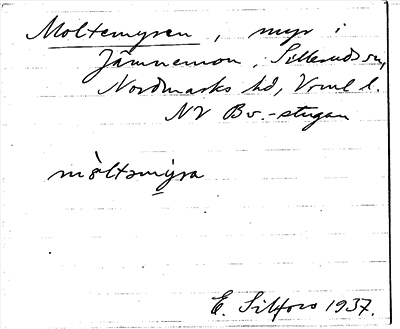 Moltemyren, myr i
Jämnemon, Sillerud sn,
Nordmarks hd, Vrml l.
NV Bv.-stugan
mòltəmýra
E. Silfors 1937.